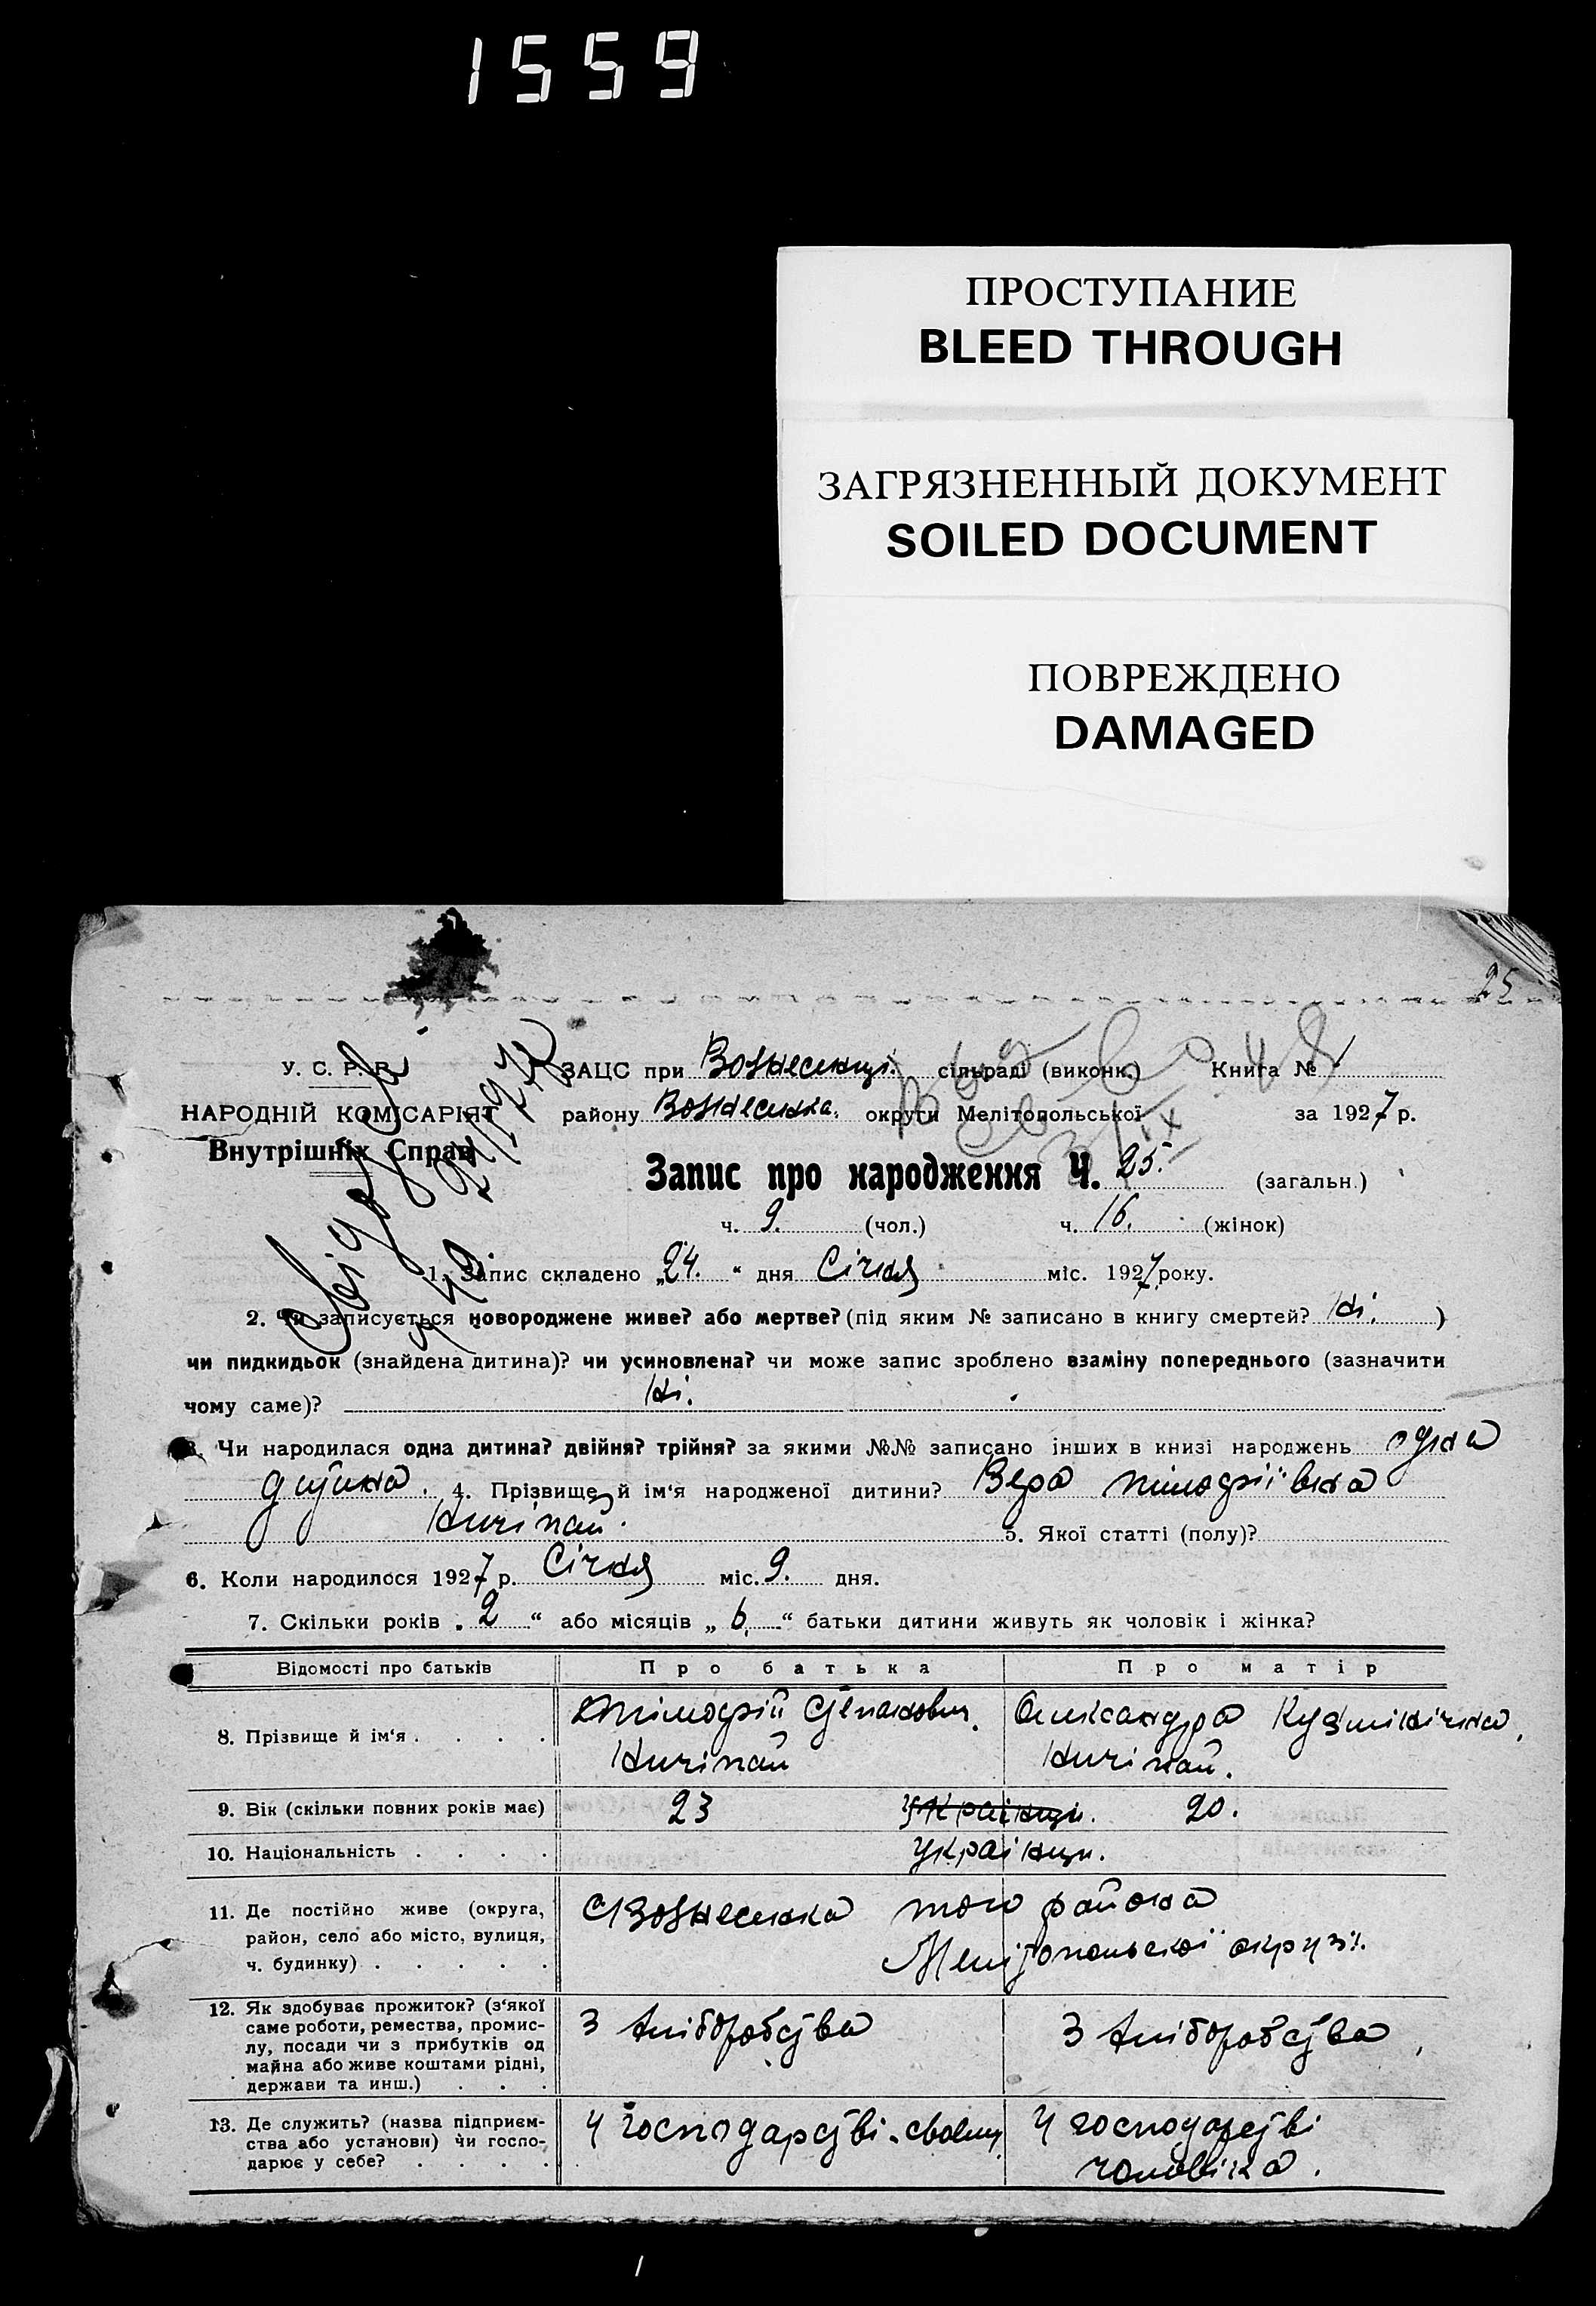 1559
ПРОСТУПАНИЕ
BLEED THROUGH
ЗАГРЯЗНЕННЫЙ ДОКУМЕНТ
SOILED DOCUMENT
ПОВРЕЖДЕНО
DAMAGED
25
У. С. Р. Р.
НАРОДНІЙ КОМІСАРІЯТ
Внутрішніх Справ
ЗАЦС при Вознесенці. сільраді (виконк.) Книга № 1
району Вознесенка. округи Мелітопольської за 1927 р.
Запис про народження Ч. 25. (загальн.)
ч. 9. (чол.) ч. 16. (жінок)
1. Запис складено „24.“ дня Січня міс. 1927 року.
2. Чи записується новороджене живе? або мертве? (під яким № записано в книгу смертей? Ні. )
чи пидкидьок (знайдена дитина)? чи усиновлена? чи може запис зроблено взаміну попереднього (зазначити
чому саме)? Ні.
3. Чи народилася одна дитина? двійня? трійня? за якими №№ записано інших в книзі народжень одна
дитина. 4. Прізвище й ім'я народженої дитини? Вера Тімофіївна
Ничіпай. 5. Якої статті (полу)?
6. Коли народилося 1927 р. Січня міс. 9. дня.
7. Скільки років „2“ або місяців „6“ батьки дитини живуть як чоловік і жінка?
Відомості про батьків Про батька Про матір
8. Прізвище й ім'я . . . . Тімофій Степанович. Олександра Кузминічна.
Ничіпай Ничіпай.
9. Вік (скільки повних років має) 23 Українци. 20.
10. Національність . . . . Українци.
11. Де постійно живе (округа,
район, село або місто, вулиця,
ч. будинку) . . . . .
С Вознесенка того района
Мелітопольскої окрузі.
12. Як здобуває прожиток? (з'якої
саме роботи, ремества, промис-
лу, посади чи з прибутків од
майна або живе коштами рідні,
держави та инш.) . . .
З хліборобства З хліборобства
13. Де служить? (назва підприєм-
ства або установи) чи госпо-
дарює у себе? . . . .
У господарстві своему У господарстві
чоловіка.